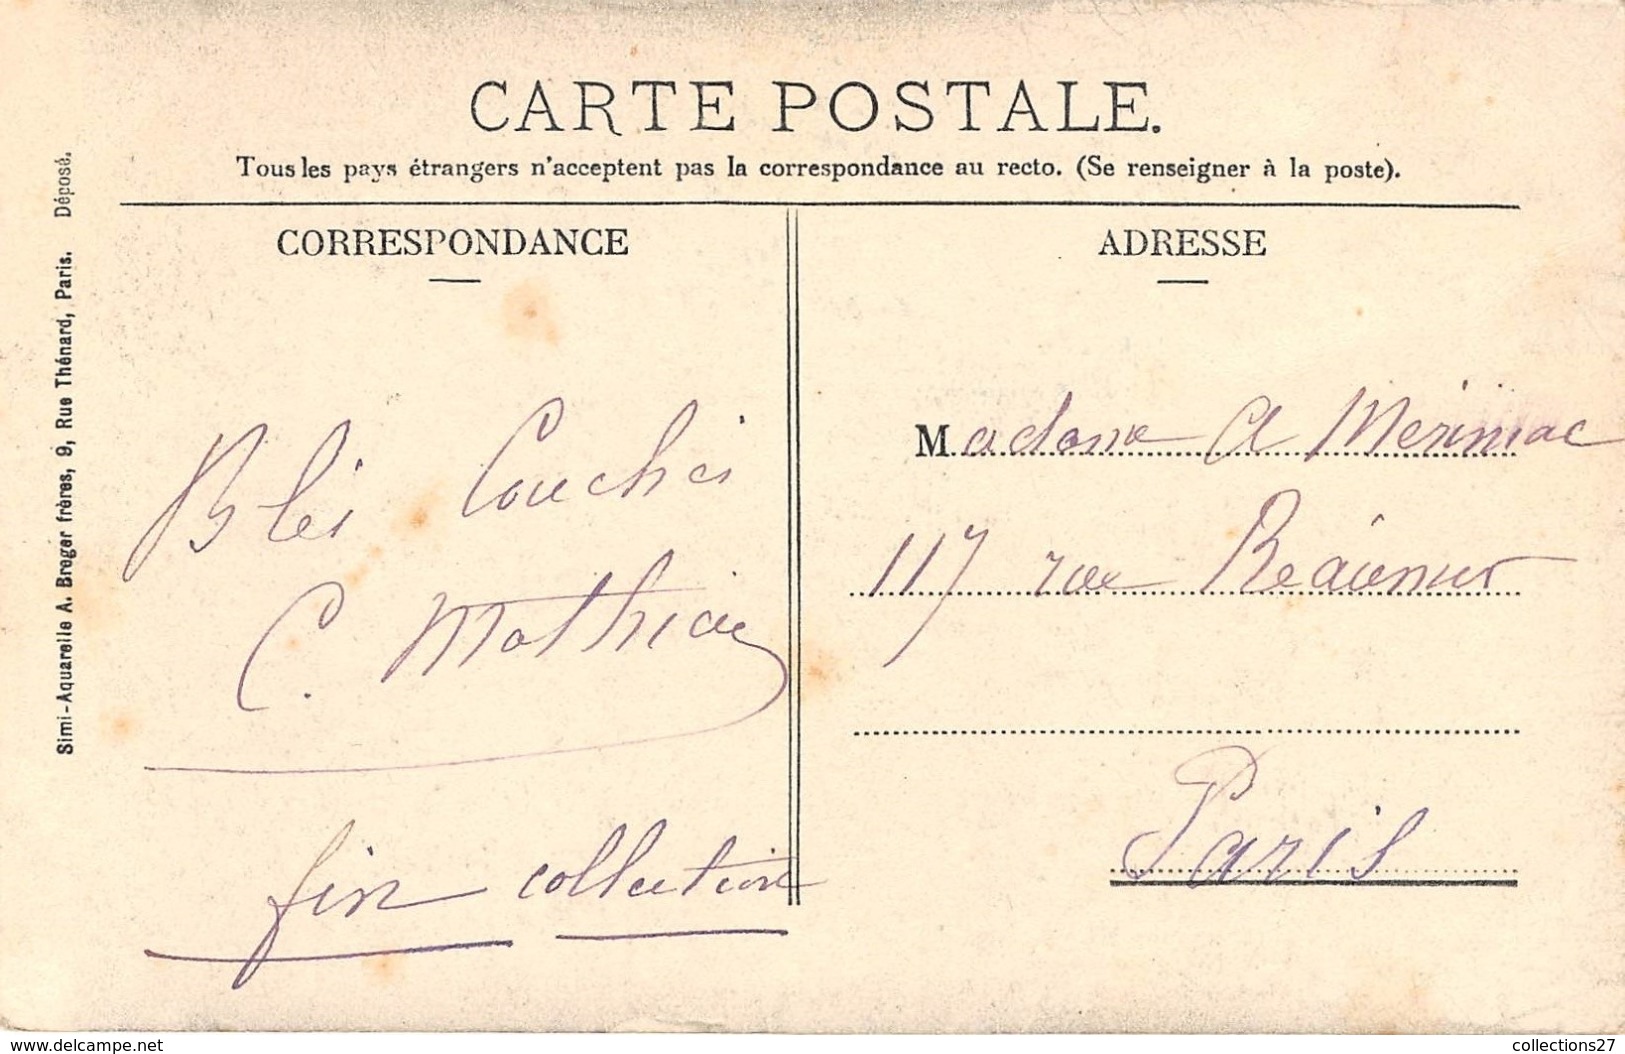 CARTE POSTALE.
Tous les pays étrangers n'acceptent pas la correspondance au recto. (Se renseigner à la poste).
CORRESPONDANCE
Blés Couchés
C. Mathieu
fin collection
ADRESSE
Madame A Mérimac
117 rue Réaumur
Paris
Simi-Aquarelle A. Breger frères, 9, Rue Thénard, Paris. Déposé.
www.delcampe.net
collections27